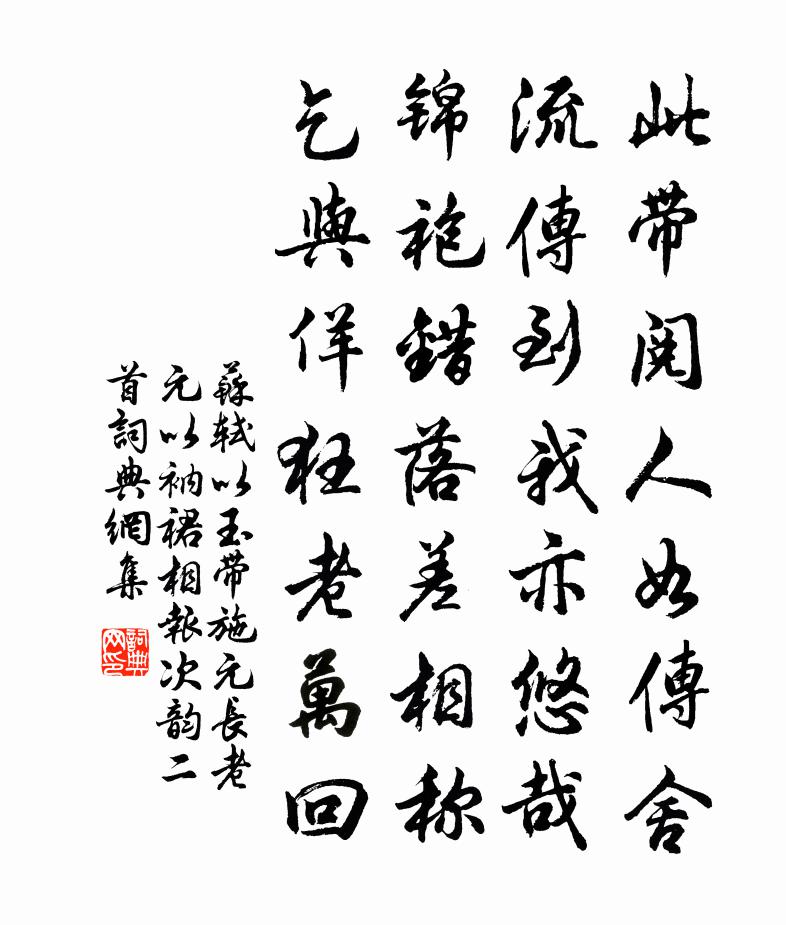 此带阅人如傳舍
流傳到我亦悠哉
锦袍錯落差相称
乞與佯狂老萬回
蘇軾以玉带施元長老
元以衲裙相報次韵二
首詞典網集
詞典网印